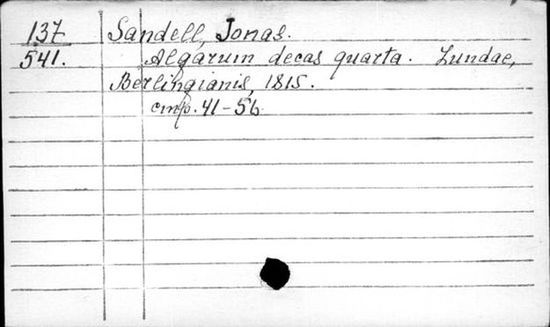 137 Sandell, Jonas.
541. Algarum decas quarta. Lundae,
Berlingianis, 1815.
стр. 41-56